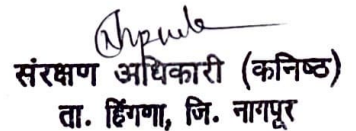 संरक्षण अधिकारी (कनिष्ठ)
ता. हिंगणा, जि. नागपूर